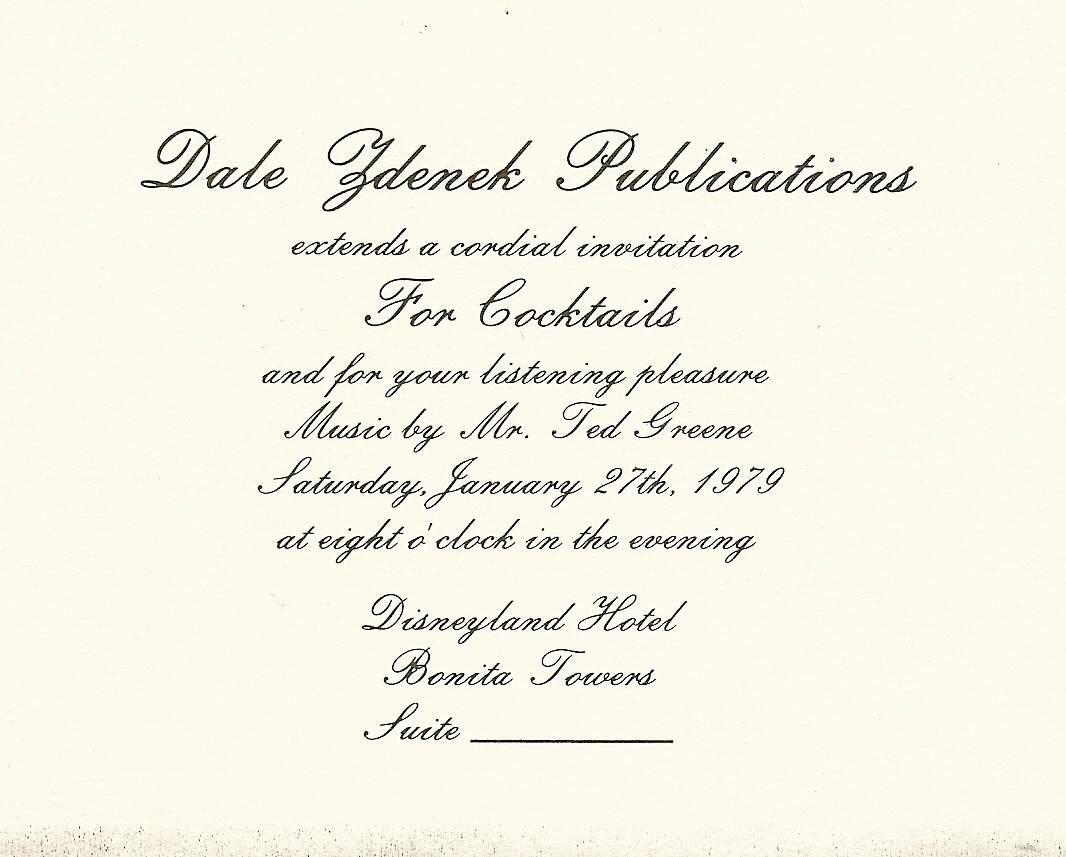 Dale Zdenek Publications
extends a cordial invitation
For Cocktails
and for your listening pleasure
Music by Mr. Ted Greene
Saturday, January 27th, 1979
at eight o'clock in the evening
Disneyland Hotel
Bonita Towers
Suite __________